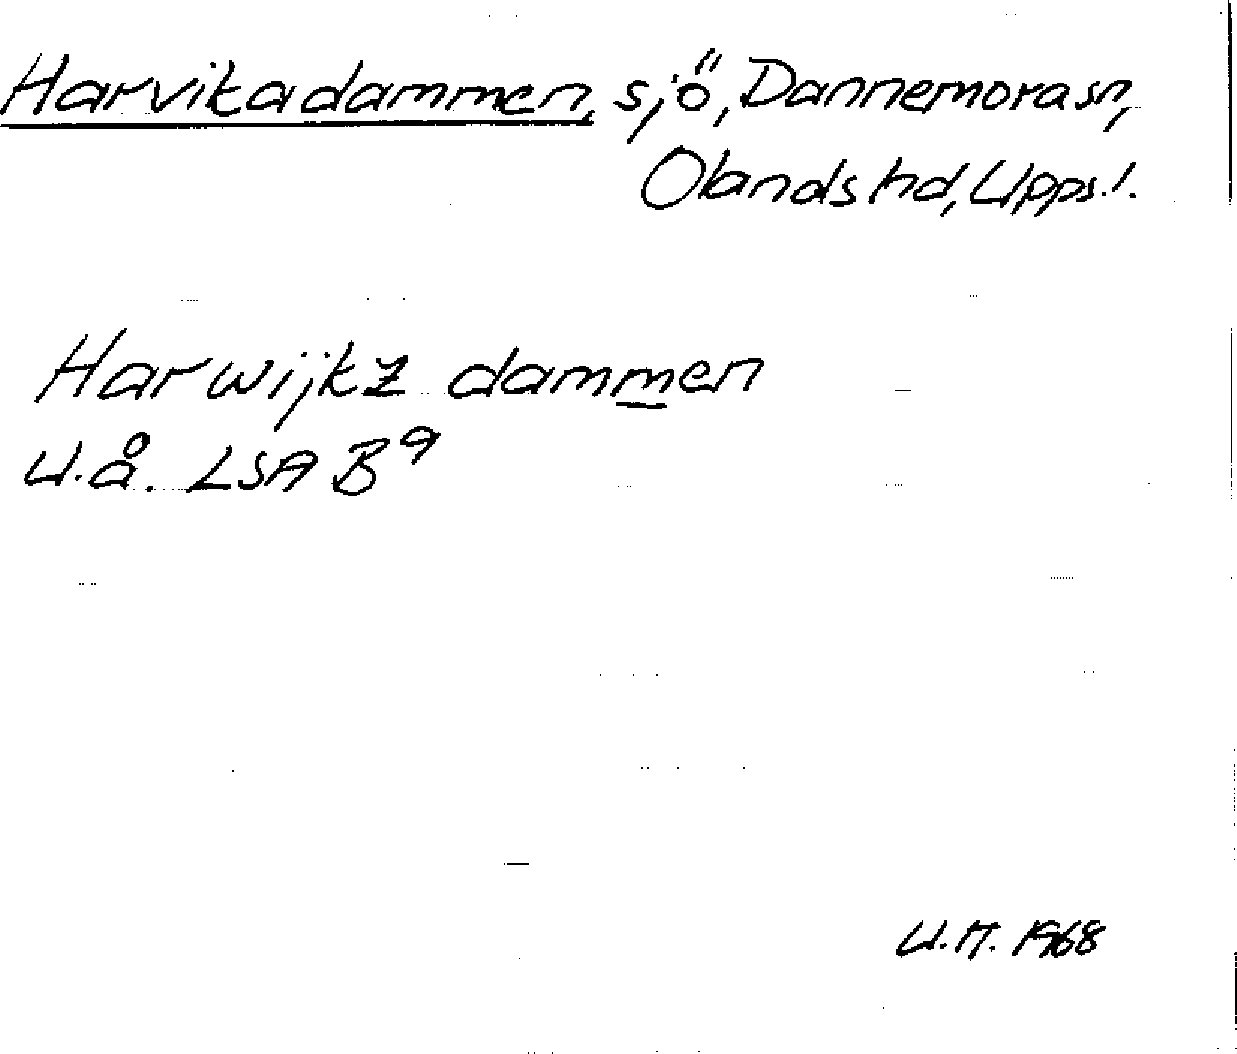 Harvikadammen, sjö, Dannemora sn,
Olands hd, Upps. l.
Harwijkz dammen
u.å. LSA B⁹
U.H. 1968